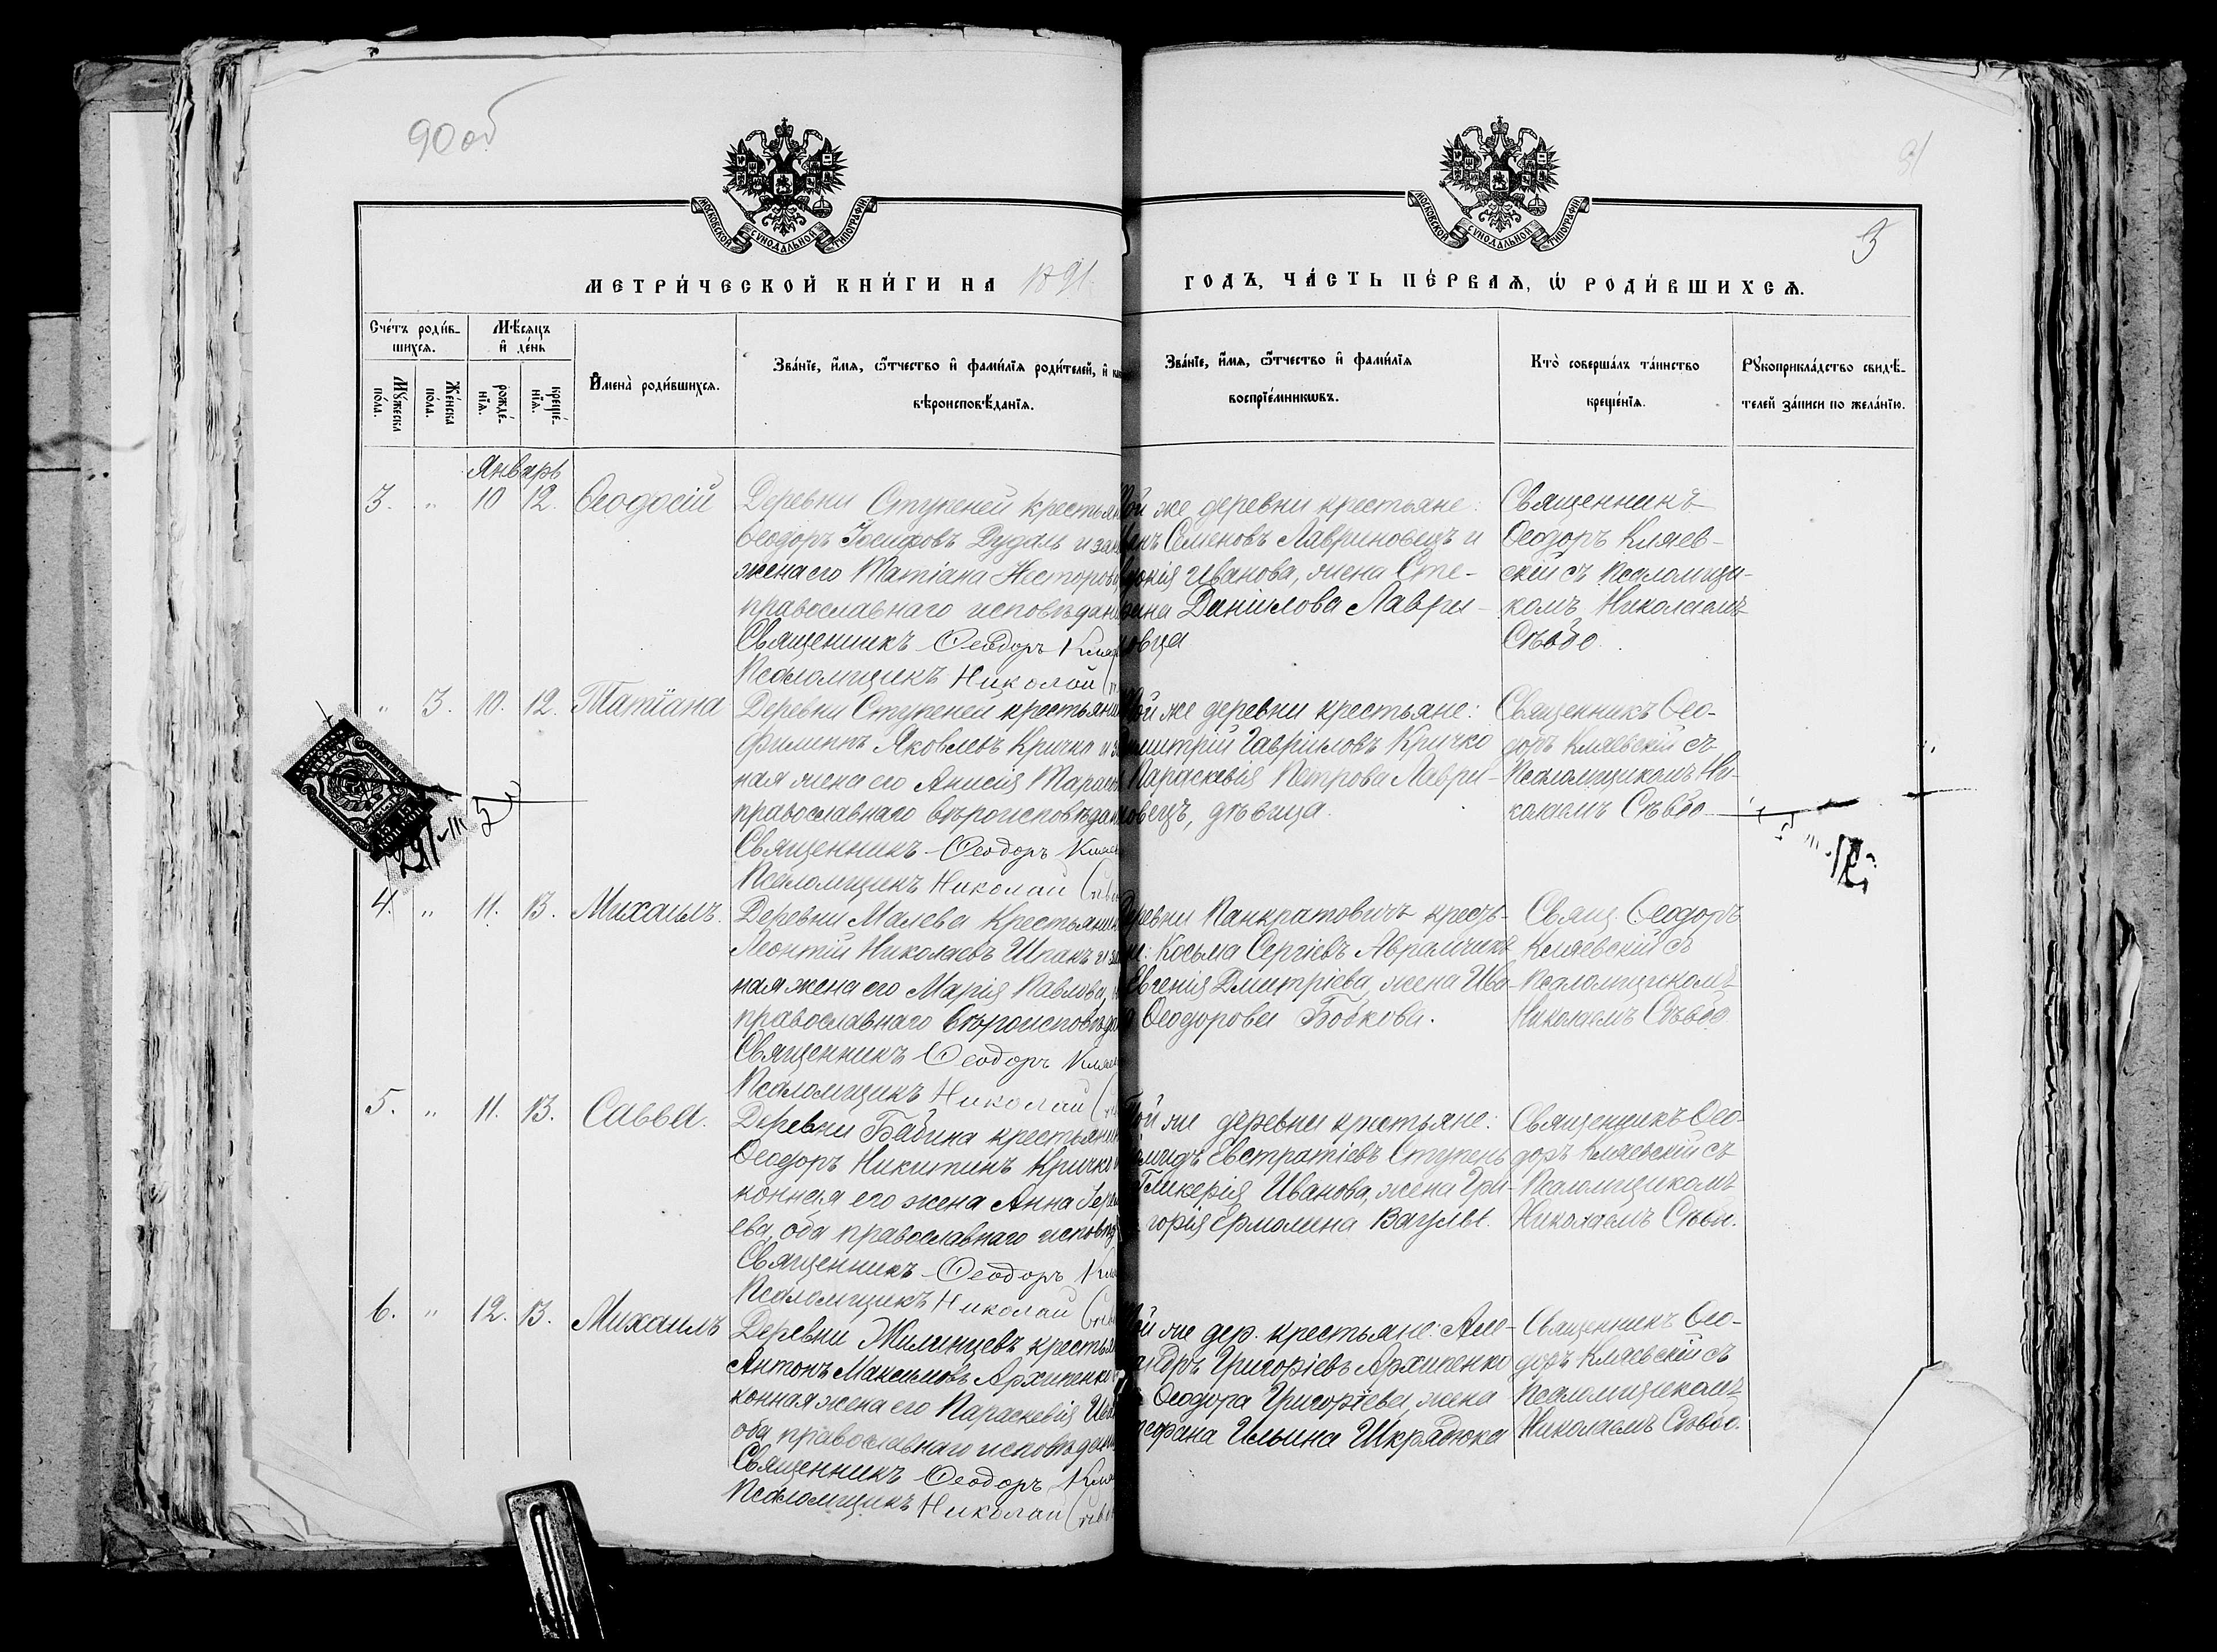 90 об
3
МОСКОВСКОЙ СѴНОДАЛЬНОЙ ТИПОГРАФІИ
МОСКОВСКОЙ СѴНОДАЛЬНОЙ ТИПОГРАФІИ
МЕТРИ́ЧЕСКОЙ КНИ́ГИ НА 1891 ГОДЪ, ЧА́СТЬ ПЕ́РВАѦ, Ѡ҆ РОДИ́ВШИХСѦ.
Сче́тъ роди́в-
шихсѧ.
Мꙋ́жеска по́ла.
Же́нска по́ла.
Мѣ́сѧцъ
и҆ де́нь
рожде́-
нїѧ.
креще́-
нїѧ.
И҆мена̀ роди́вшихсѧ.
Зва́нїе, и҆́мѧ, ѻ҆́тчество и҆ фами́лїѧ роди́телей, и҆
вѣроисповѣ́данїѧ.
Зва́нїе, и҆́мѧ, ѻ҆́тчество и҆ фами́лїѧ
воспрїе́мникѡвъ.
Кто̀ соверша́лъ та́инство
креще́нїѧ.
Рꙋкоприкла́дство свидѣ́-
телей за́писи по жела́нїю.
Январь
3. " 10 12. Ѳеодосій
Деревни Ступеней крестьян
Ѳеодоръ Іосифовъ Дудаль и зак
жена его Татіана Несторов
православнаго исповѣдан
Священникъ Ѳеодоръ Кляе
Псаломщикъ Николай
той же деревни крестьяне:
Семеновъ Лавриновецъ и
Иванова, жена Сте-
Данилова Лаври-
новца
Священникъ
Ѳеодоръ Кляев-
скій съ псаломщи-
комъ Николаемъ
Сѣвбо.
" 3. 10. 12. Татіана
Деревни Ступеней крестьянин
Филиппъ Яковлевъ Кричко и з
ная жена его Анисія Тарас
православнаго вѣроисповѣдан
Священникъ Ѳеодоръ Кляев
Псаломщикъ Николай
той же деревни крестьяне:
Димитрій Гавриловъ Кричко
Параскевія Петрова Лаври-
новецъ, дѣвица.
Священникъ Ѳео-
доръ Кляевскій съ
Псаломщикомъ Ни-
колаемъ Сѣвбо
15 15
4. " 11. 13. Михаилъ.
Деревни Малева Крестьянин
Леонтій Николаевъ Шпакъ и за
ная жена его Марія Павлова,
православнаго вѣроисповѣда
Священникъ Ѳеодоръ Кляе
Псаломщикъ Николай
Деревни Панкратовичъ кресть-
не: Косьма Сергіевъ Аврамчикъ
Евгенія Дмитріева, жена Ива-
на Ѳеодорова Бобкова.
Свящ. Ѳеодоръ
Кляевскій съ
Псаломщикомъ
Николаемъ Сѣвбо
5. " 11. 13. Савва.
Деревни Бабина крестьянин
Ѳеодоръ Никитинъ Кричко
конная его жена Анна Серг
ева, оба православнаго исповѣ
Священникъ Ѳеодоръ Кля
Псаломщикъ Николай
той же деревни крестьяне:
Евстратіевъ Ступень
Гликерія Иванова, жена Гри-
горія Ермолина Вагулы.
Священникъ Ѳео-
доръ Кляевскій съ
Псаломщикомъ
Николаемъ Сѣвбо.
6. " 12. 13. Михаилъ
Деревни Жилинцевъ крестья
Антонъ Максимовъ Архипенко
конная жена его Параскевія
оба православнаго исповѣдан
Священникъ Ѳеодоръ Кля
Псаломщикъ Николай
той же дер. крестьяне: Але-
ксандръ Григоріевъ Архипенко
Ѳеодора Григоріева, жена
Стефана Ильина Шкрядюка
Священникъ Ѳео-
доръ Кляевскій съ
Псаломщикомъ
Николаемъ Сѣвбо.